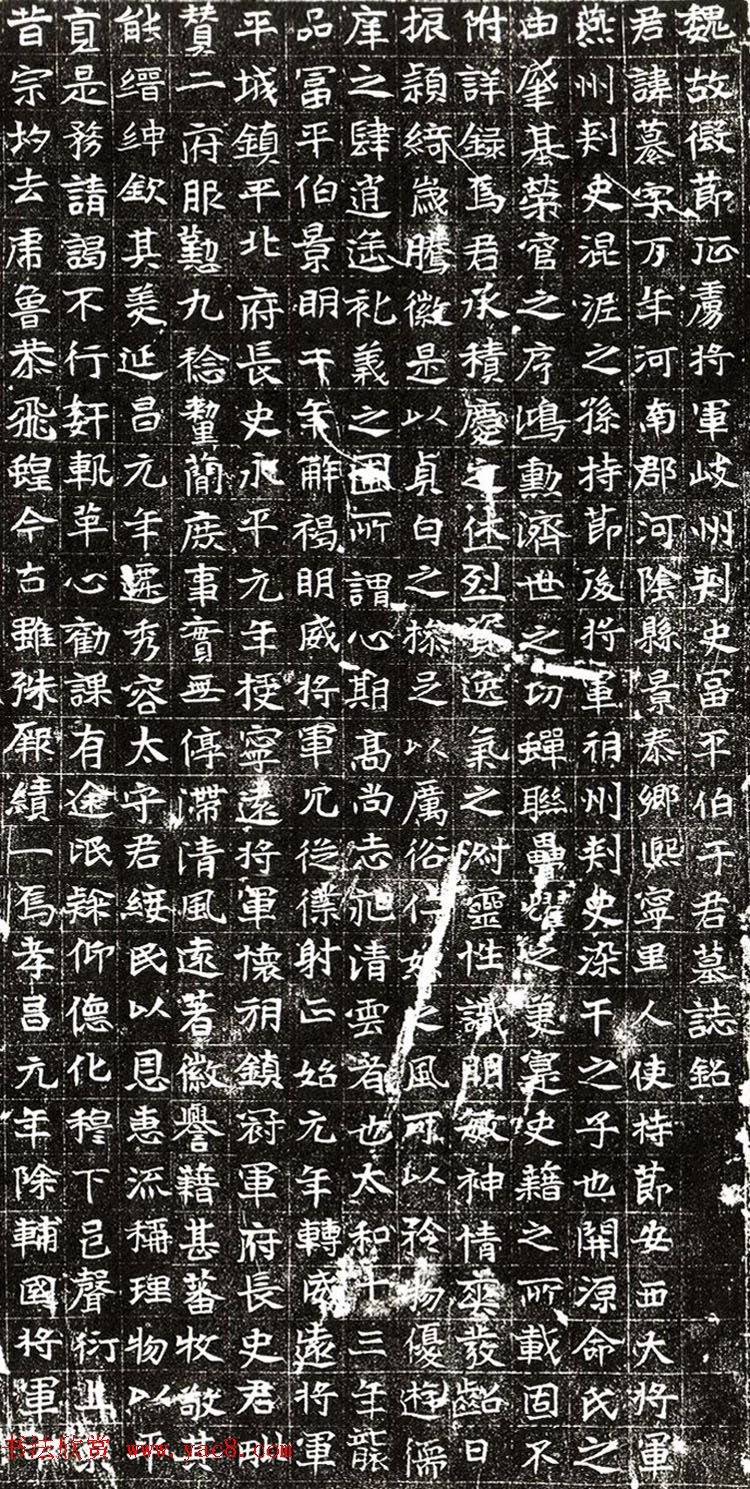 魏故假節征虜將軍岐州刺史富平伯于君墓誌銘
君諱纂字万年河南郡河陰縣景泰鄉熙寧里人使持節安西大將軍
燕州刺史混泥之孫持節後將軍朔州刺史染干之子也開源命氏之
由肇基榮官之序鴻勳濟世之功蟬聯疊耀之美寔史籍之所載固不
附詳錄焉君承積慶之休烈資逸氣之淑靈性識閑敏神情爽發齠日
振穎綺歲騰徽是以貞白之操足以厲俗仁恕之風可以矜物優遊儒
庠之肆逍遙礼義之圃所謂心期高尚志邈清雲者也太和十三年襲
品冨平伯景明千年解褐明威將軍冗從僕射正始元年轉威遠將軍
平城鎮平北府長史永平元年授寧遠將軍懷朔鎮冠軍府長史君剖
賛二府服懃九稔釐蕳庶事實無停滯清風遠著徽譽籍甚蕃牧敬其
能縉紳欽其美延昌元年遷秀容太守君綏民以恩惠流稱理物以平
直是務請謁不行姧軌革心勸課有途氓余仰德化穆下邑聲衍上京
昔宗均去虎魯恭飛蝗今古雖殊厥績一焉孝昌元年除輔國將軍
书法欣赏 www.yac8.com